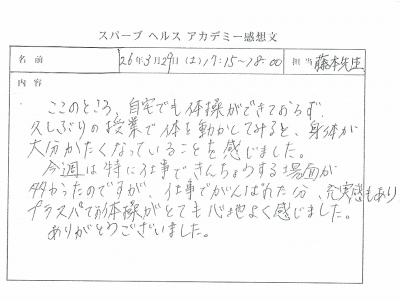 スパーブ ヘルス アカデミー感想文
名前 26年3月29日(土)17:15~18:00 担当 藤本先生
内容
ここのところ、自宅でも体操ができておらず、
久しぶりの授業で体を動かしてみると、身体が
大分かたくなっていることを感じました。
今週は特に仕事できんちょうする場面が
多かったのですが、仕事でがんばれた分、充実感もあり
プラスパで体操がとても心地よく感じました。
ありがとうございました。